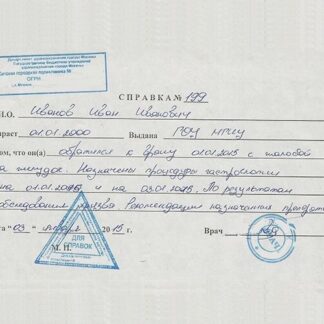 Департамент здравоохранения города Москвы
Государственное бюджетное учреждение
здравоохранения города Москвы
городская поликлиника
ОГРН
г. Москва
СПРАВКА № 199
И.О. Иванов Иван Иванович
зраст 01.01.2000 Выдана РОУ
ом, что он(а) обратился к врачу 01.01.2015 с жалобой
на желудок. Назначены процедуры гастроскопии
на 01.01.2015 и на 03.01.2015. По результатам
обследования Рекомендации
та "03" 2015 Врач
М. П.
ДЛЯ
СПРАВОК
ВРАЧ